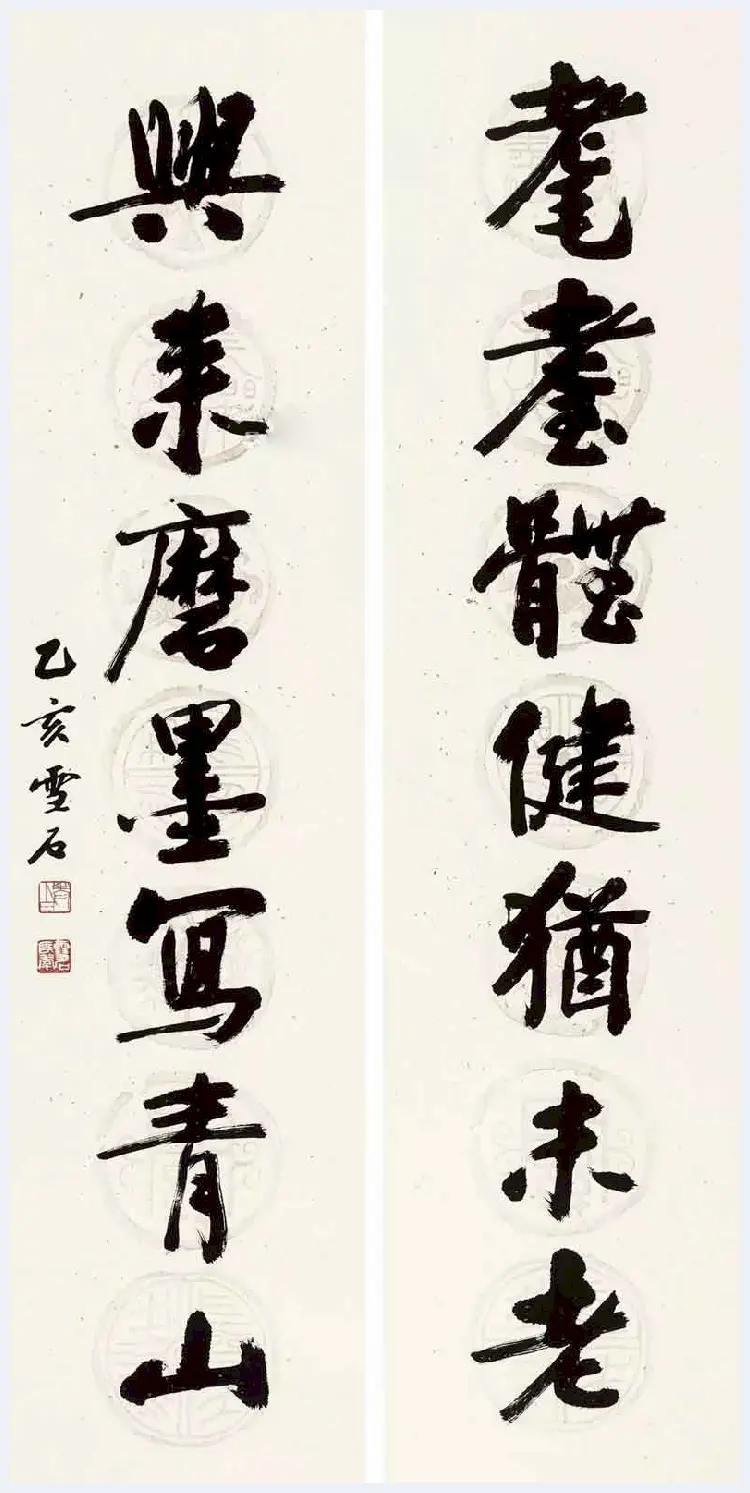 耄耋體健猶未老
興來磨墨寫青山
乙亥雪石